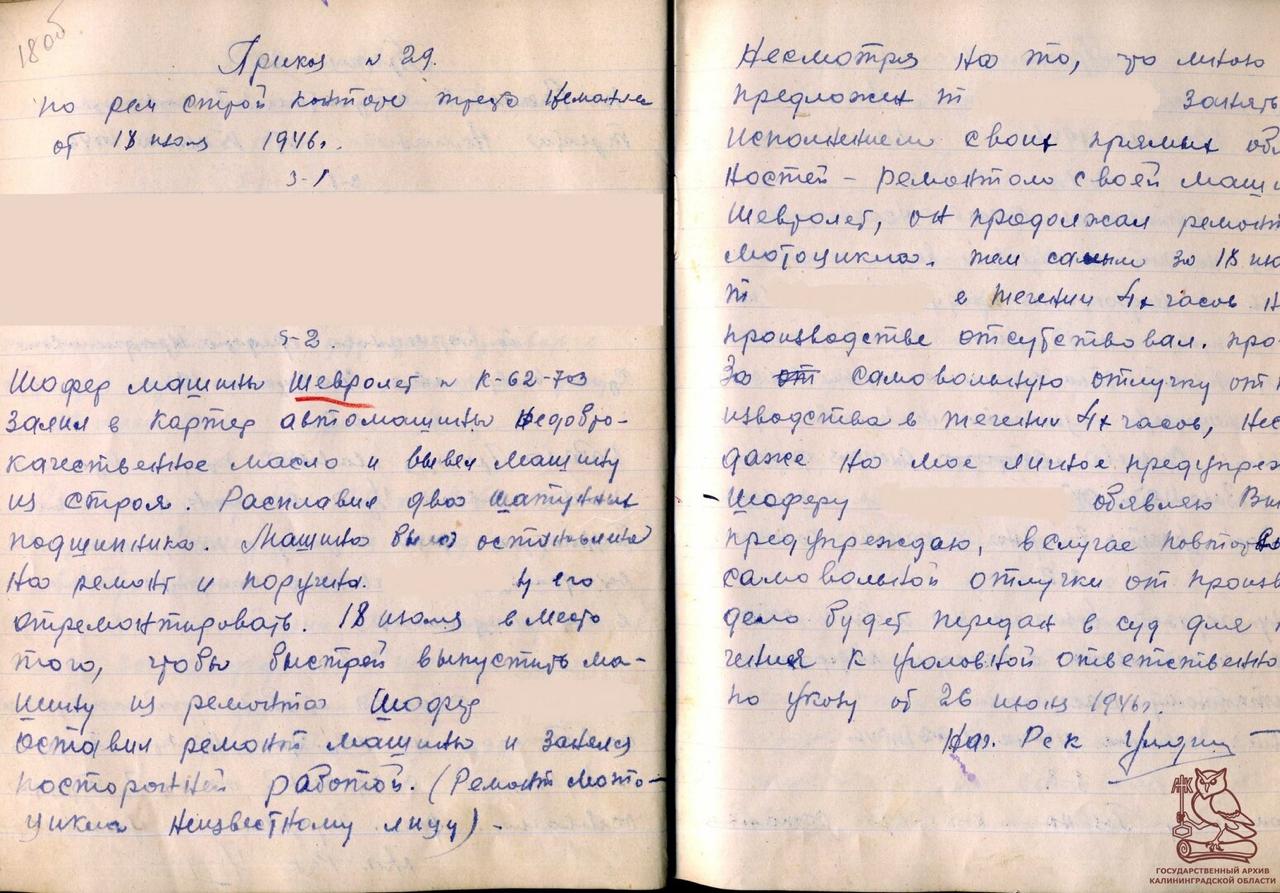 180б
Приказ № 29.
по рем строй конторе треста
от 18 июля 1946г.
§-1
§-2.
Шофер машины Шевролет № К-62-703
Залил в картер автомашины недобро-
качественное масло и вывел машину
из строя. Расплавил два шатунных
подшипника. Машина была остановлена
на ремонт и поручена его
отремонтировать. 18 июля в место
того, чтобы быстрей выпустить ма-
шину из ремонта Шофер
оставил ремонт машины и занялся
посторонней работой. (Ремонт мото-
цикла неизвестному лицу) -
Несмотря на то, что мною
предложен т занять
исполнением своих прямых обя
ностей - ремонтом своей маши
Шевролет, он продолжал ремонт
мотоцикла. тем самым за 18 ию
т в течении 4х часов н
производстве отсутствовал.
За от самовольную отлучку от
изводства в течении 4х часов, нес
даже на мое личное предупреж
- Шоферу обявляю Вы
предупреждаю, в случае повтор
самовольной отлучки от произв
дело будет передан в суд для
чения к уголовной ответственно
по указу от 26 июня 1946г.
Нач. Рск
ГОСУДАРСТВЕННЫЙ АРХИВ
КАЛИНИНГРАДСКОЙ ОБЛАСТИ